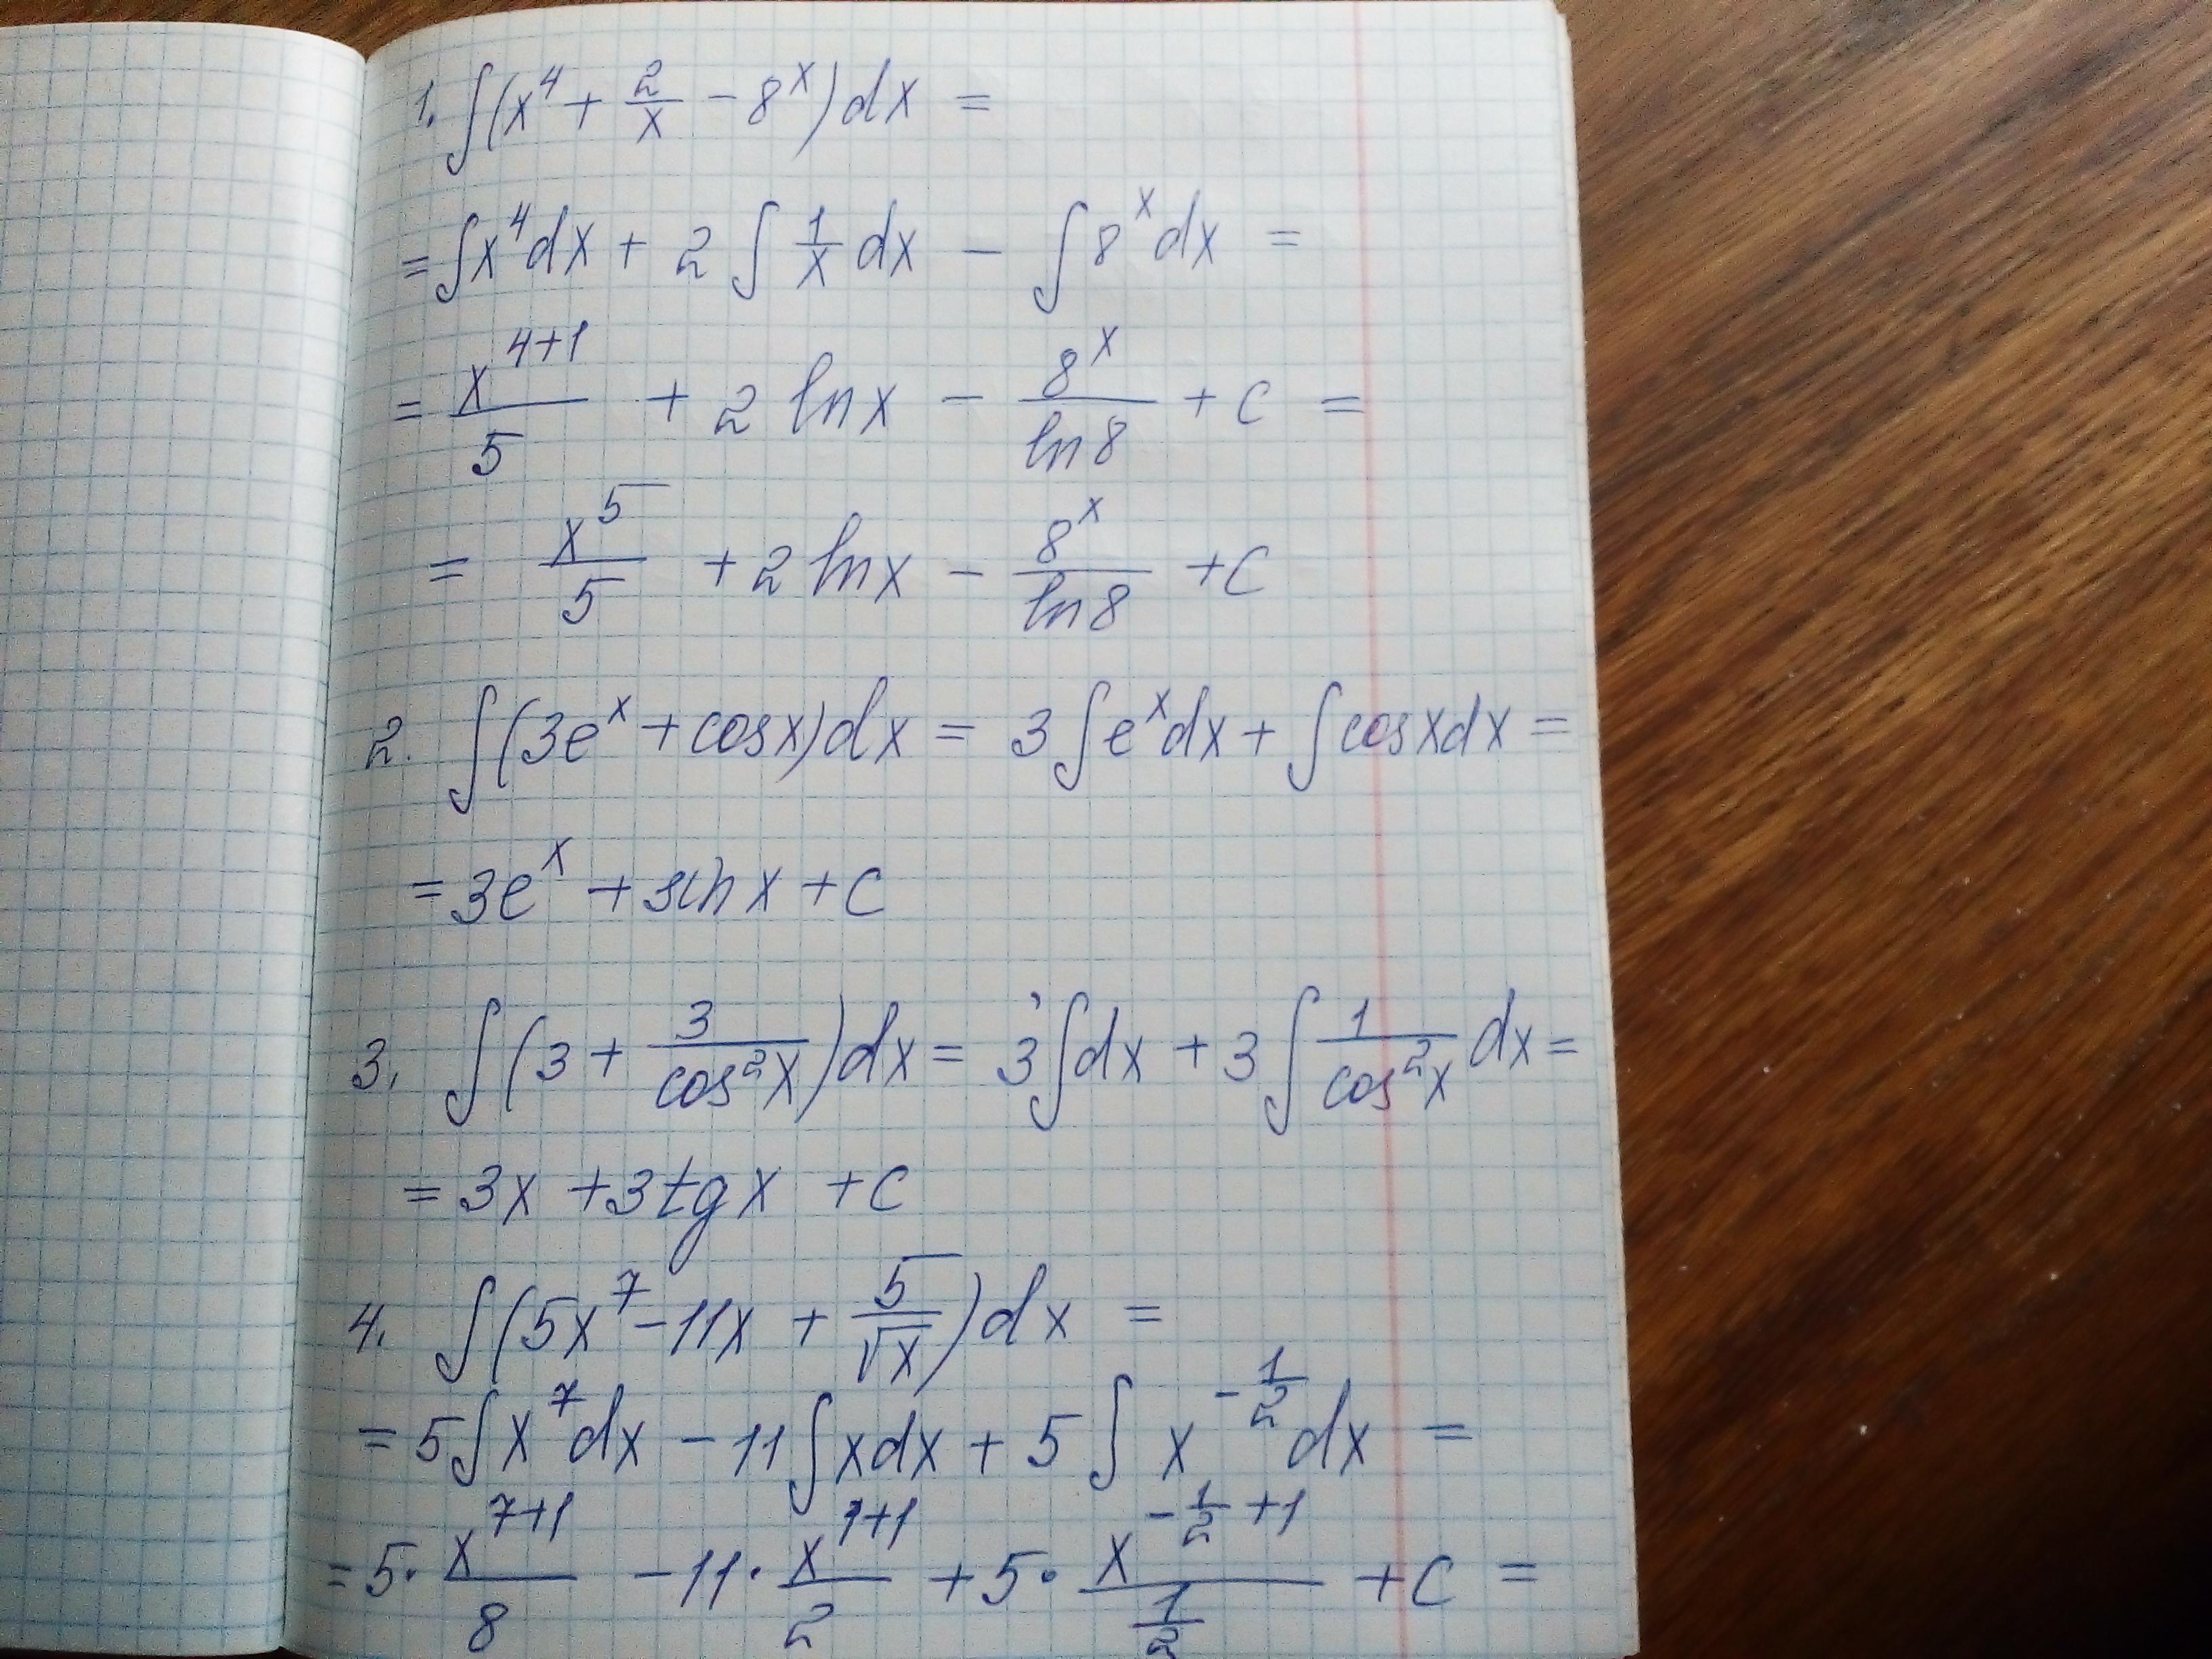 1. ∫(x⁴ + 2/x − 8ˣ)dx =
= ∫x⁴dx + 2∫1/x dx − ∫8ˣdx =
= x⁴⁺¹/5 + 2 ln x − 8ˣ/ln 8 + C =
= x⁵/5 + 2 ln x − 8ˣ/ln 8 + C
2. ∫(3eˣ + cos x)dx = 3∫eˣdx + ∫cos x dx =
= 3eˣ + sin x + C
3. ∫(3 + 3/cos²x)dx = 3∫dx + 3∫1/cos²x dx =
= 3x + 3tg x + C
4. ∫(5x⁷ − 11x + 5/√x)dx =
= 5∫x⁷dx − 11∫xdx + 5∫x^(−1/2)dx =
= 5·x⁷⁺¹/8 − 11·x¹⁺¹/2 + 5·x^(−1/2+1)/(1/2) + C =